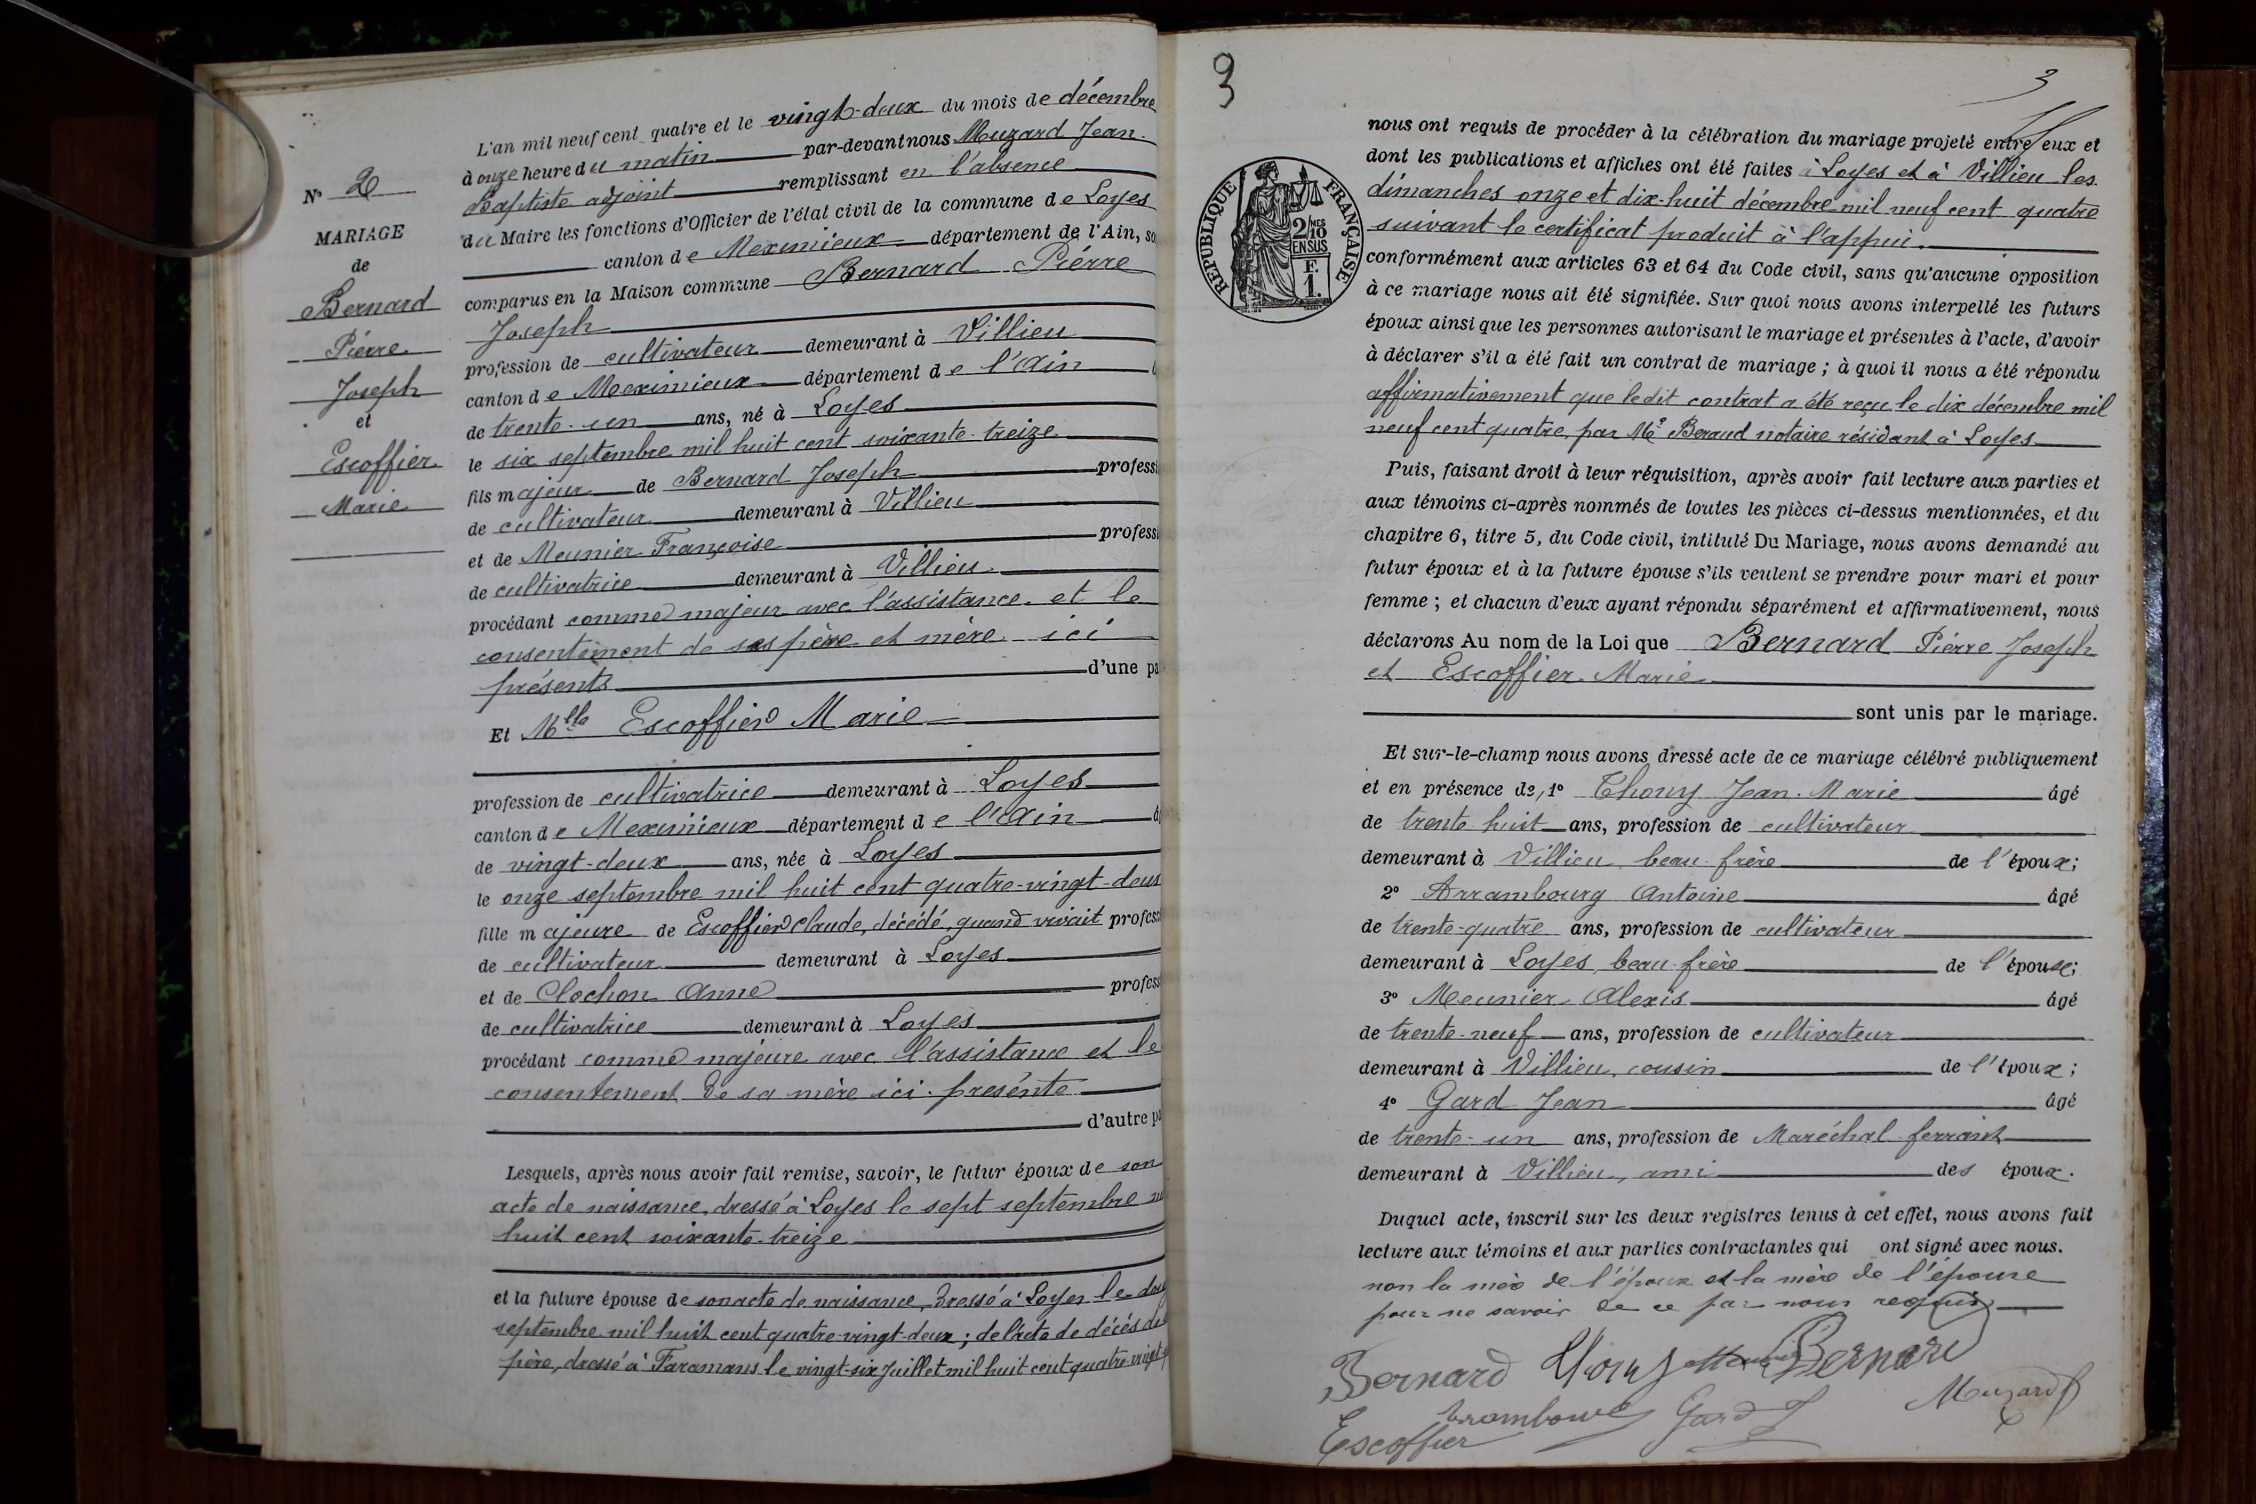 N° 20
MARIAGE
de
Bernard
Pierre
Joseph
et
Escoffier
Marie
L'an mil neuf cent quatre et le vingt-deux du mois de décembre
à onze heure du matin par-devant nous Muzard Jean
Baptiste adjoint remplissant en l'absence
du Maire les fonctions d'Officier de l'état civil de la commune de Loyes
canton de Meximieux département de l'Ain, so
comparus en la Maison commune Bernard Pierre
Joseph
profession de cultivateur demeurant à Villieu
canton de Meximieux département de l'Ain
de trente-un ans, né à Loyes
le six septembre mil huit cent soixante-treize
fils majeur de Bernard Joseph professi
de cultivateur demeurant à Villieu
et de Meunier Françoise professi
de cultivatrice demeurant à Villieu
procédant comme majeur avec l'assistance et le
consentement de ses père et mère ici
présents d'une pa
Et Mlle Escoffier Marie
profession de cultivatrice demeurant à Loyes
canton de Meximieux département de l'Ain
de vingt-deux ans, née à Loyes
le onze septembre mil huit cent quatre-vingt-deux
fille majeure de Escoffier Claude, décédé, quand vivait profess
de cultivateur demeurant à Loyes
et de Clochon Anne profess
de cultivatrice demeurant à Loyes
procédant comme majeure avec l'assistance et le
consentement de sa mère ici présente
d'autre pa
Lesquels, après nous avoir fait remise, savoir, le futur époux de son
acte de naissance, dressé à Loyes le sept septembre mil
huit cent soixante-treize
et la future épouse de son acte de naissance, dressé à Loyes le
septembre mil huit cent quatre-vingt-deux ; de l'acte de décès de
père, dressé à Faramans le vingt-six Juillet mil huit cent quatre-vingt
3
3
RÉPUBLIQUE FRANÇAISE
2/10
EN SUS
F.
1.
nous ont requis de procéder à la célébration du mariage projeté entre eux et
dont les publications et affiches ont été faites à Loyes et à Villieu les
dimanches onze et dix-huit décembre mil neuf cent quatre
suivant le certificat produit à l'appui.
conformément aux articles 63 et 64 du Code civil, sans qu'aucune opposition
à ce mariage nous ait été signifiée. Sur quoi nous avons interpellé les futurs
époux ainsi que les personnes autorisant le mariage et présentes à l'acte, d'avoir
à déclarer s'il a été fait un contrat de mariage ; à quoi il nous a été répondu
affirmativement que ledit contrat a été reçu le dix décembre mil
neuf cent quatre par Me Beraud notaire résidant à Loyes
Puis, faisant droit à leur réquisition, après avoir fait lecture aux parties et
aux témoins ci-après nommés de toutes les pièces ci-dessus mentionnées, et du
chapitre 6, titre 5, du Code civil, intitulé Du Mariage, nous avons demandé au
futur époux et à la future épouse s'ils veulent se prendre pour mari et pour
femme ; et chacun d'eux ayant répondu séparément et affirmativement, nous
déclarons Au nom de la Loi que Bernard Pierre Joseph
et Escoffier Marie
sont unis par le mariage.
Et sur-le-champ nous avons dressé acte de ce mariage célébré publiquement
et en présence de, 1° Thouy Jean-Marie âgé
de trente huit ans, profession de cultivateur
demeurant à Villieu, beau-frère de l'époux;
2° Arrambourg Antoine âgé
de trente-quatre ans, profession de cultivateur
demeurant à Loyes, beau-frère de l'épouse;
3° Meunier Alexis âgé
de trente-neuf ans, profession de cultivateur
demeurant à Villieu, cousin de l'époux ;
4° Gard Jean âgé
de trente-un ans, profession de Maréchal ferrant
demeurant à Villieu, ami des époux.
Duquel acte, inscrit sur les deux registres tenus à cet effet, nous avons fait
lecture aux témoins et aux parties contractantes qui ont signé avec nous.
non la mère de l'époux et la mère de l'épouse
pour ne savoir de ce par nous requis
Bernard Thouy Meunier Bernard
Arrambourg Gard Muzard
Escoffier